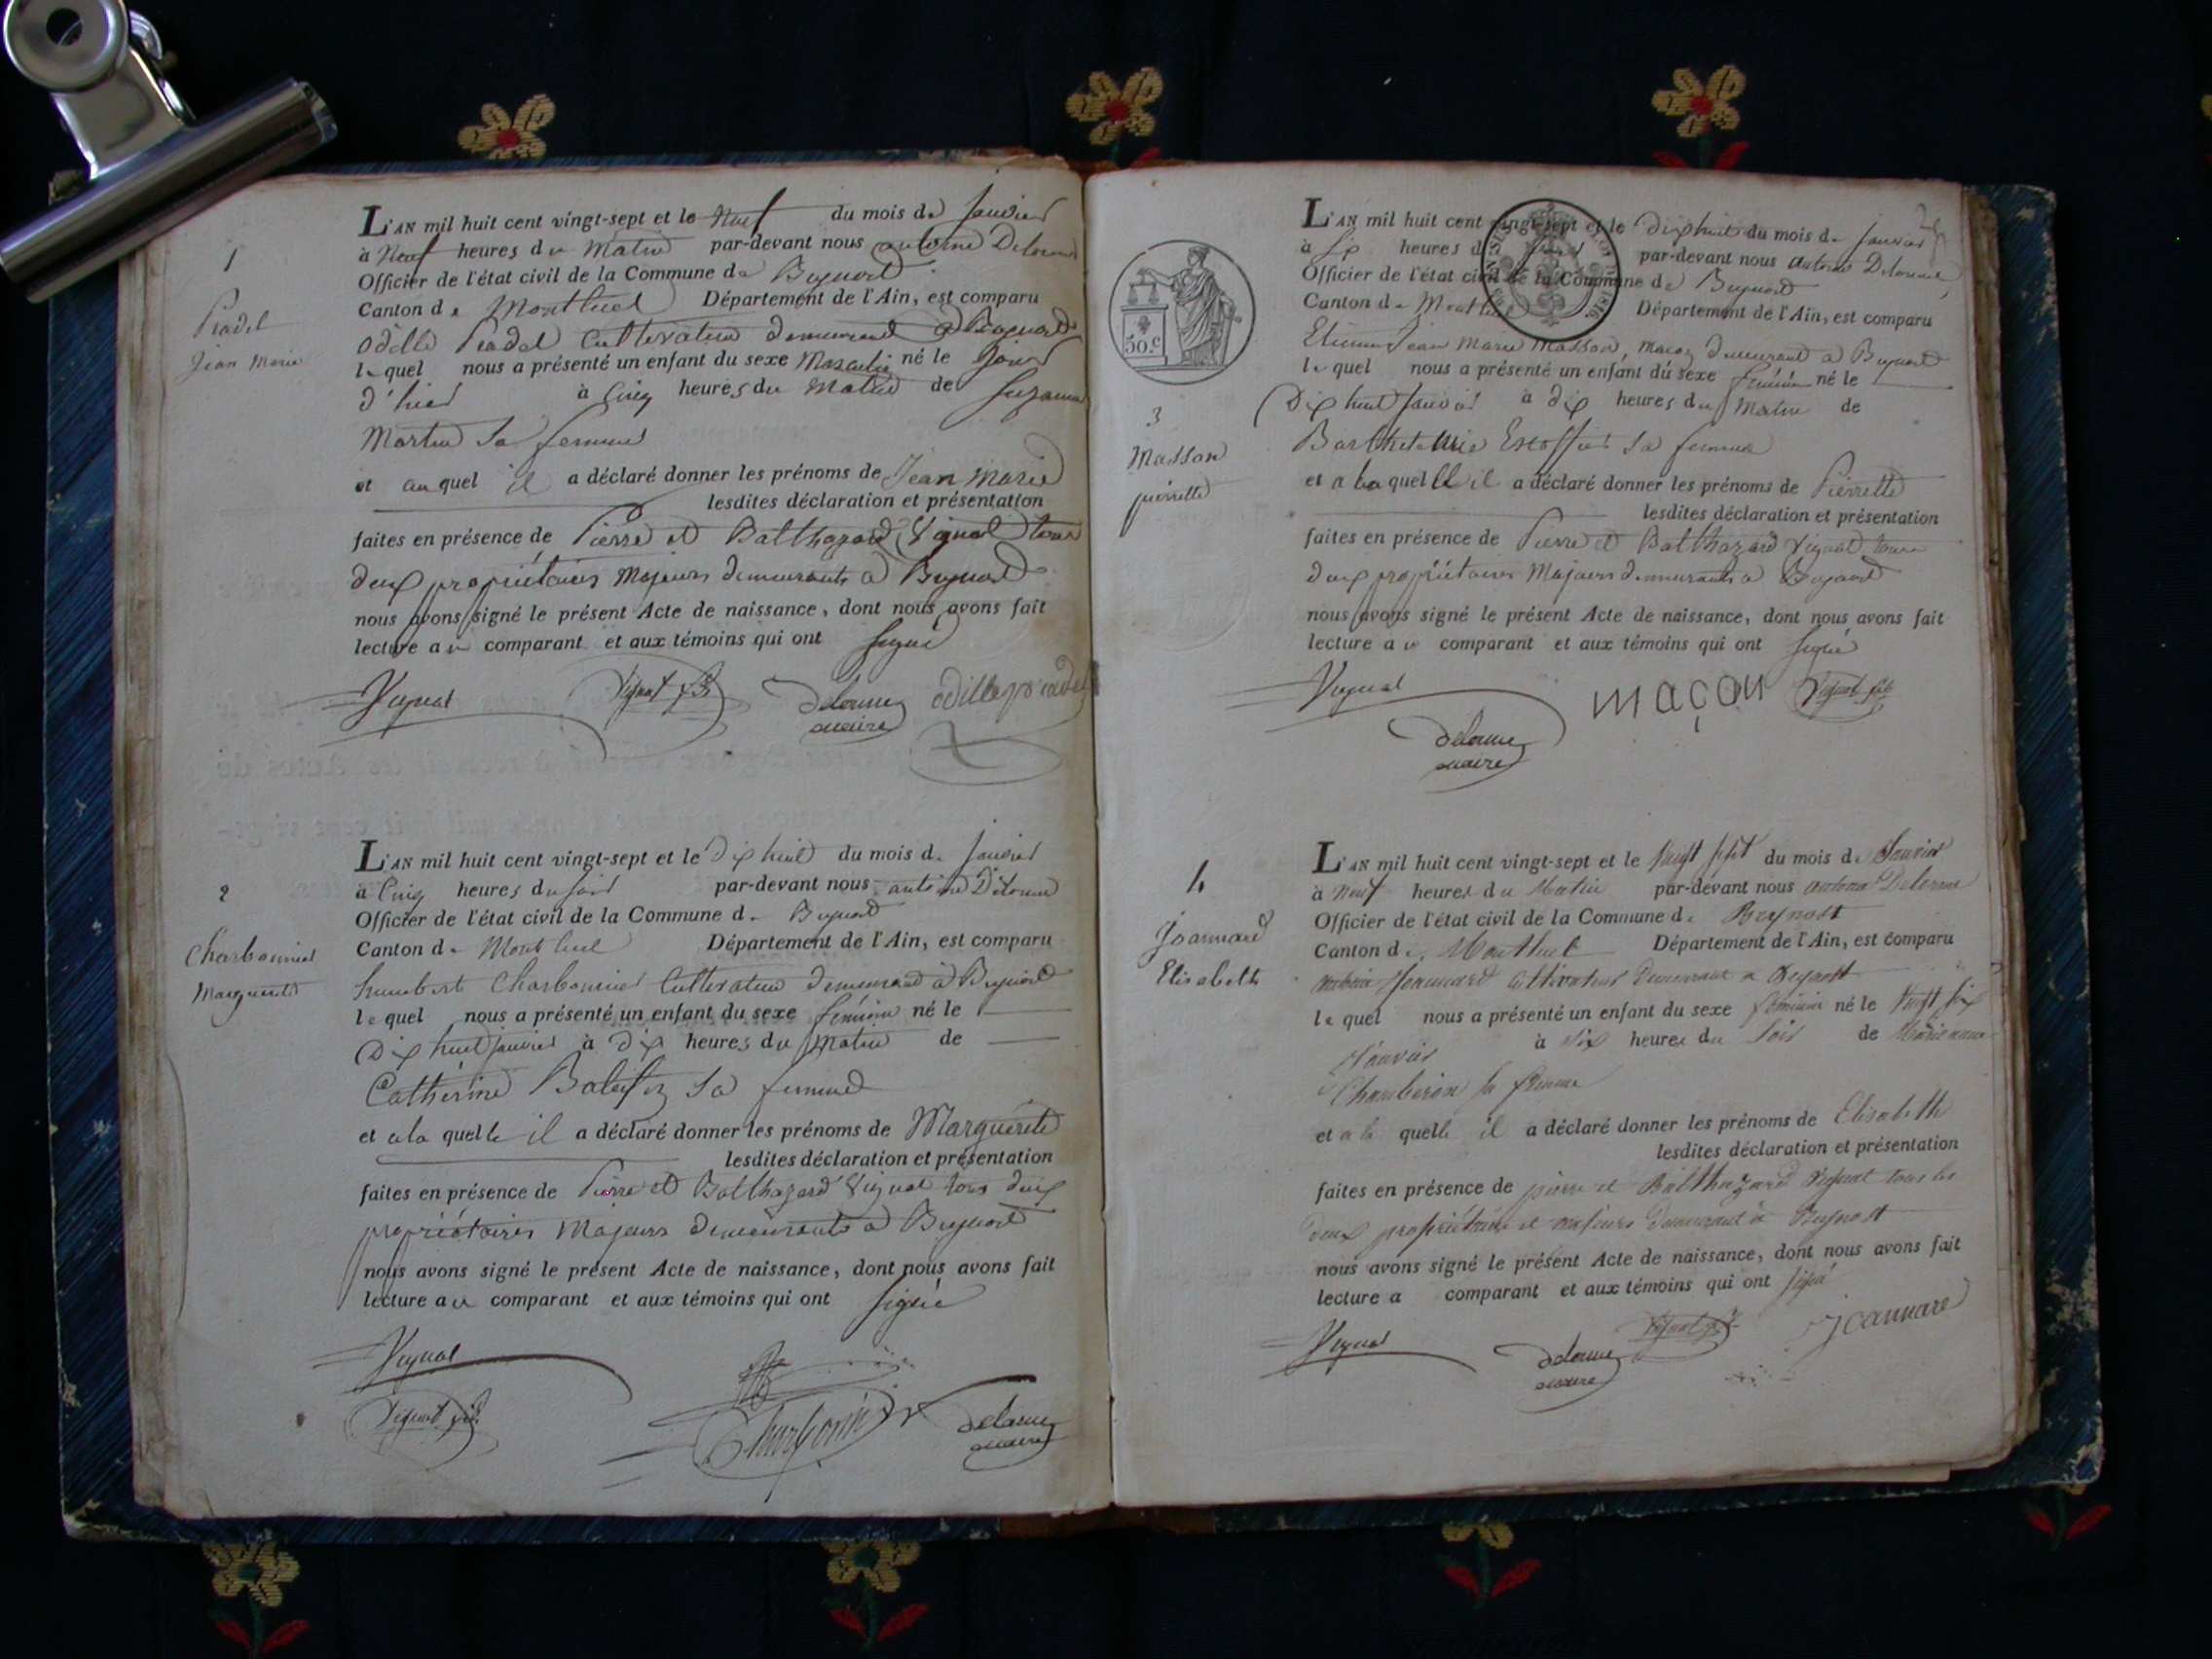 1
Pradel
Jean Marie
L'AN mil huit cent vingt-sept et le Neuf du mois de Janvier
à Neuf heures du Matin par-devant nous antoine Delorme
Officier de l'état civil de la Commune de Beynost
Canton de Montluel Département de l'Ain, est comparu
Odille Pradel Cultivateur demeurant à Beynost
lequel nous a présenté un enfant du sexe Masculin né le Jour
d'hier à Cinq heures du Matin de Suzanne
Martin Sa femme
et auquel il a déclaré donner les prénoms de Jean Marie
lesdites déclaration et présentation
faites en présence de Pierre et Balthazard Vignat tous
deux propriétaires Majeurs demeurants à Beynost
nous avons signé le présent Acte de naissance, dont nous avons fait
lecture au comparant et aux témoins qui ont Signé
Vignat Vignat Delorme maire odille pradel
2
Charbonnier
Marguerite
L'AN mil huit cent vingt-sept et le Dix huit du mois de Janvier
à Cinq heures du soir par-devant nous antoine Delorme
Officier de l'état civil de la Commune de Beynost
Canton de Montluel Département de l'Ain, est comparu
humbert Charbonnier Cultivateur demeurant à Beynost
lequel nous a présenté un enfant du sexe féminin né le
Dix huit Janvier à dix heures du Matin de
Catherine Sa femme
et a la quelle il a déclaré donner les prénoms de Marguerite
lesdites déclaration et présentation
faites en présence de Pierre et Balthazard Vignat tous deux
propriétaires Majeurs demeurants à Beynost
nous avons signé le présent Acte de naissance, dont nous avons fait
lecture au comparant et aux témoins qui ont Signé
Vignat
Vignat Charbonier Delorme maire
50.c
3
Masson
pierrette
L'AN mil huit cent vingt-sept et le Dixhuit du mois de Janvier
à Six heures du soir par-devant nous antoine Delorme
Officier de l'état civil de la Commune de Beynost
Canton de Montluel Département de l'Ain, est comparu
Etienne Jean Marie Masson, maçon demeurant à Beynost
lequel nous a présenté un enfant du sexe féminin né le
Dix huit Janvier à dix heures du Matin de
Barthelemie Escoffier Sa femme
et a la quelle il a déclaré donner les prénoms de Pierrette
lesdites déclaration et présentation
faites en présence de Pierre et Balthazard Vignat tous
deux propriétaires Majeurs demeurants à Beynost
nous avons signé le présent Acte de naissance, dont nous avons fait
lecture au comparant et aux témoins qui ont Signé
Vignat maçon Vignat
Delorme maire
4
Joannard
Elisabeth
L'AN mil huit cent vingt-sept et le vingt sept du mois de Janvier
à neuf heures du Matin par-devant nous antoine Delorme
Officier de l'état civil de la Commune de Beynost
Canton de Montluel Département de l'Ain, est comparu
antoine Joannard cultivateur demeurant a Beynost
lequel nous a présenté un enfant du sexe féminin né le vingt six
Janvier à six heures du Soir de Marie anne
Chamberon sa femme
et a la quelle il a déclaré donner les prénoms de Elisabeth
lesdites déclaration et présentation
faites en présence de pierre et Balthazard Vignat tous les
deux propriétaires et majeurs demeurant à Beynost
nous avons signé le présent Acte de naissance, dont nous avons fait
lecture a comparant et aux témoins qui ont signé
Vignat Delorme maire Vignat joannard